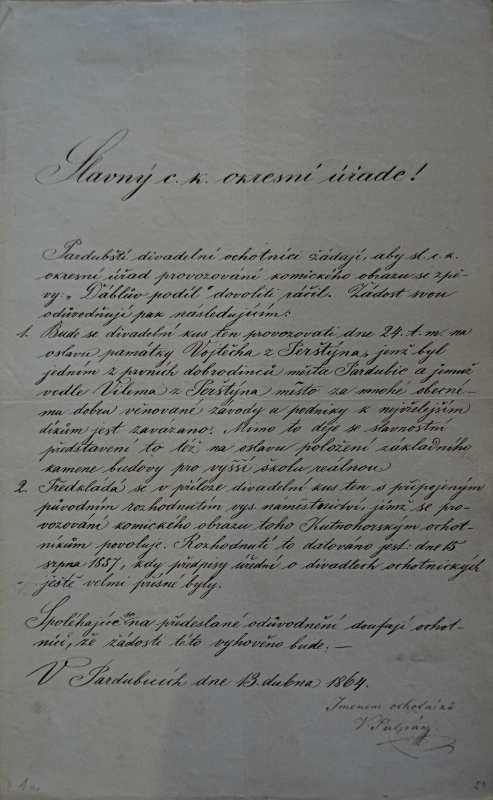 Slavný c. k. okresní úřade!
Pardubští divadelní ochotníci žádají, aby sl. c. k.
okresní úřad provozování komického obrazu se zpě-
vy: „Ďáblův podíl" dovoliti ráčil. Žádost svou
odůvodňují pak následujícím:
1. Bude se divadelní kus ten provozovati dne 24. t. m. na
oslavu památky Vojtěcha z Perštýna, jenž byl
jedním z prvních dobrodinců města Pardubic a jemuž
vedle Viléma z Perštýna město za mnohé obecné-
mu dobru věnované závody a podniky k nejvřelejším
díkům jest zavazano. Mimo to děje se slavnostní
představení to též na oslavu položení základného
kamene budovy pro vyšší školu reálnou
2. Předkládá se v příloze divadelní kus ten s připojeným
původním rozhodnutím vys. naměstnictví, jímž se pro-
vozování komického obrazu toho Kutnohorským ochot-
níkům povoluje. Rozhodnutí to datováno jest: dne 15
srpna 1857, kdy předpisy úřední o divadlech ochotnických
ještě velmi přísné byly.
Spoléhajíce se na předeslané odůvodnění doufají ochot-
níci, že žádosti této vyhověno bude. —
V Pardubicích dne 13. dubna 1864.
Jmenem ochotníků
V.
1a
59